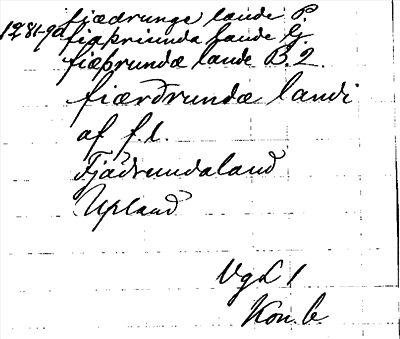 fiædrunge lande P.
1281-90 fiaþriunda lande G.
fiæþrundæ lande B.2.
fiærdrundæ landi
af f.l.
Fjädrundaland
Upland
VgL 1
Kon. b